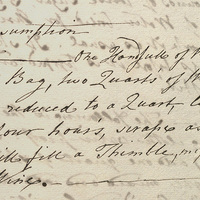 sumption
One Handfull of
Bag, two Quarts of
reduced to a Quart
our hours, scrape
ill fill a Thimble, mi
Wine.